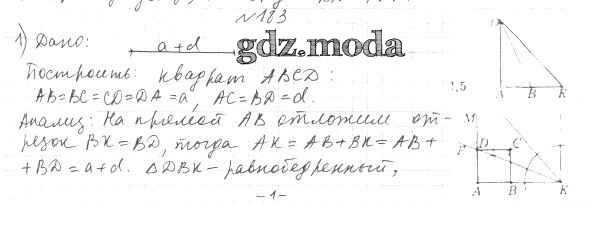 №183
1) Дано: a+d gdz.moda
Построить: квадрат ABCD:
AB=BC=CD=DA=a, AC=BD=d.
Анализ: На прямой AB отложим от-
резок BK=BD, тогда AK=AB+BK=AB+
+BD=a+d. △DBK-равнобедренный,
-1-
A B K
M
P D C
A B K